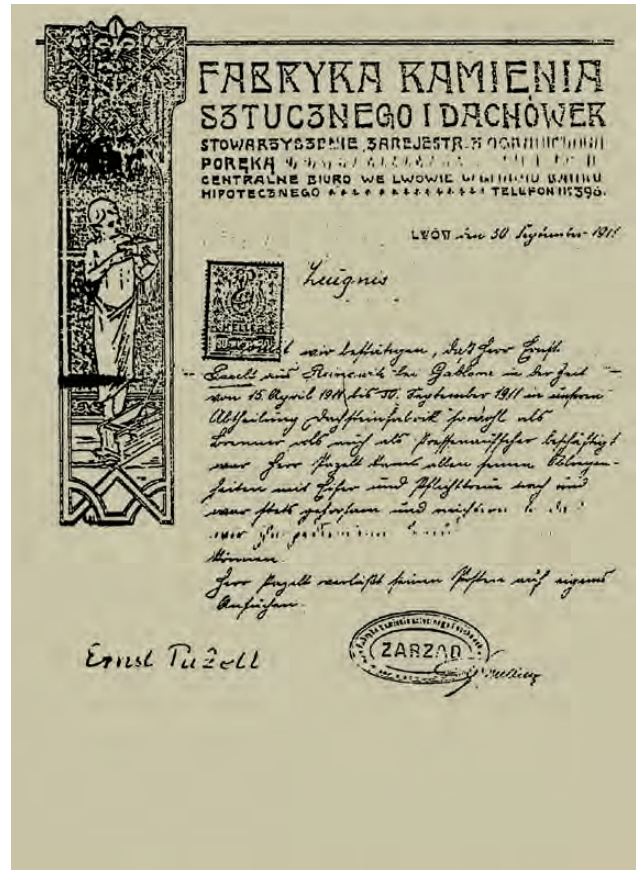 FABRYKA KAMIENIA
SZTUCZNEGO I DACHÓWEK
STOWARZYSZENIE ZAREJESTR. Z
PORĘKĄ
CENTRALNE BIURO WE LWOWIE
HIPOTECZNEGO TELEFON Nr 396.
LWÓW den 30 September 1911
Zeugnis
HELLER
wir bestätigen, daß Herr Ernst
aus bei Gablonz in der Zeit
von 15. April 1911 bis 30. September 1911 in unserer
Abtheilung Dachsteinfabrik sowohl als
Brenner als auch als Pressenaufseher beschäftigt
war. Herr Pazelt kam allen seinen
mit Eifer und Pflichttreue nach und
war stets gehorsam und
wir
können.
Herr Pazelt verläßt seinen Posten auf eigenes
Ansuchen.
Ernst
ZARZĄD